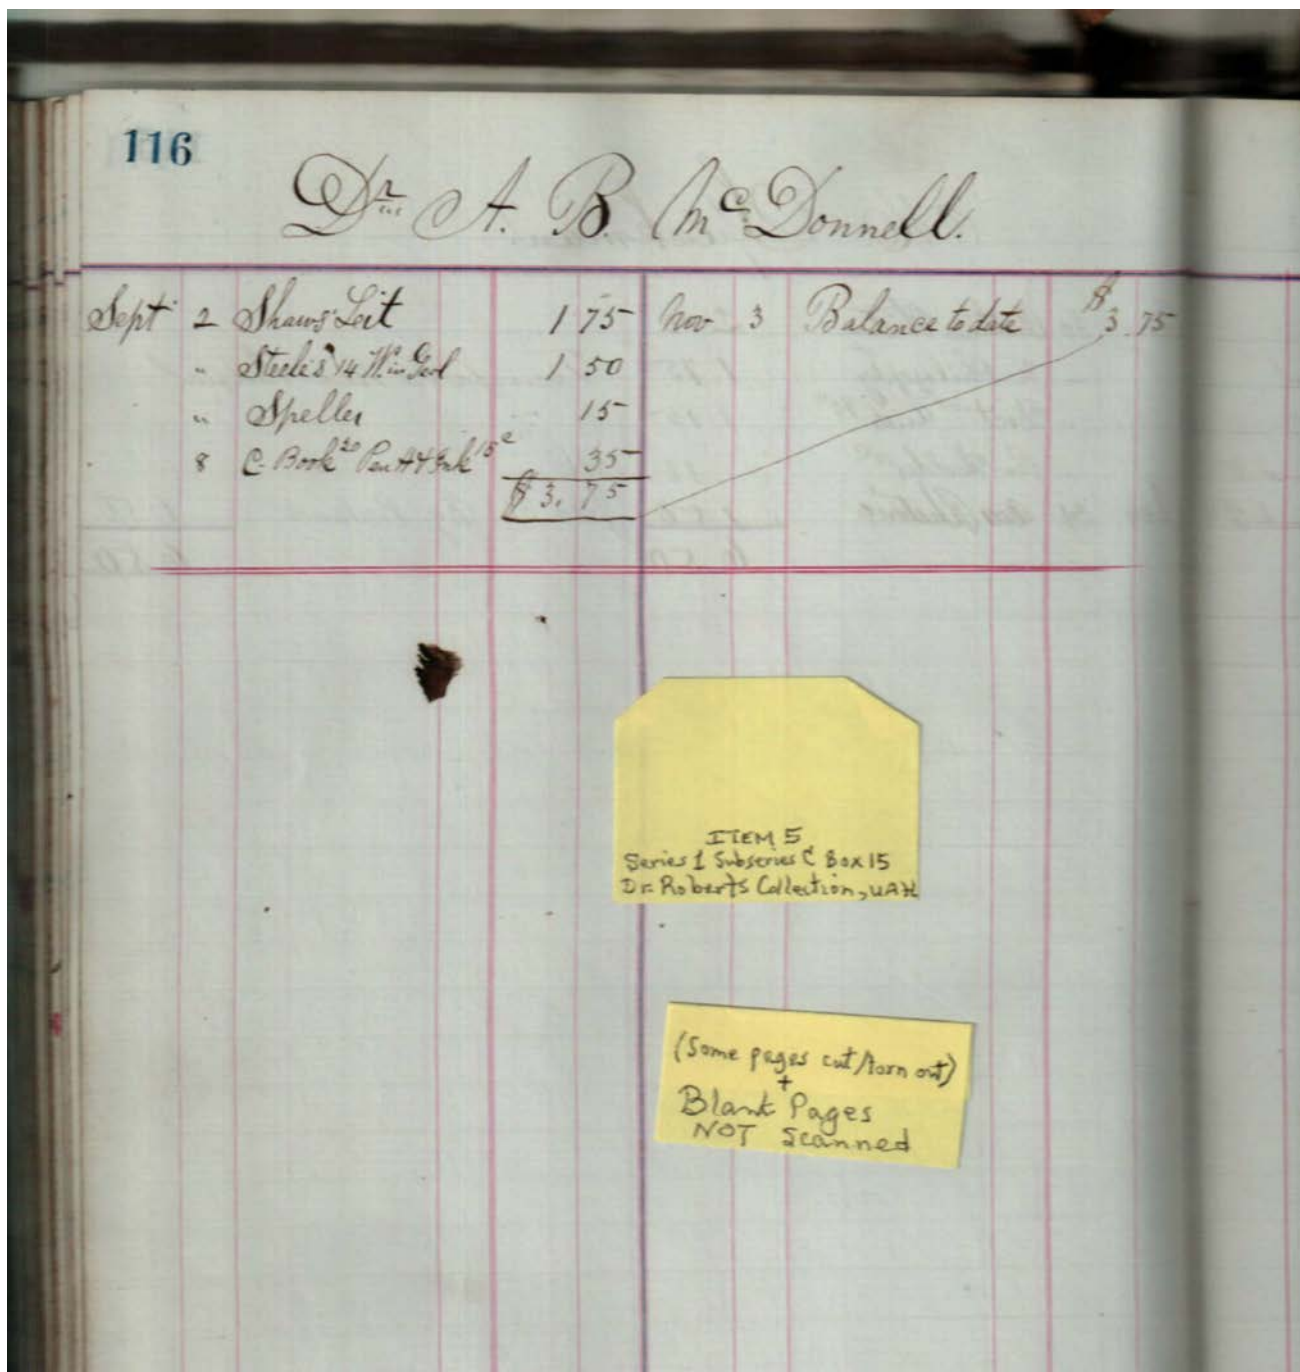 116
Dr. A. B. McDonnell.
Sept 2 Shaws' Lit 1 75 Nov 3 Balance to date $3 75
" Steele's 14 W. in Geol 1 50
" Speller 15
8 C. Book 20 Pen A & Ink 15c 35
$3.75
ITEM 5
Series 1 Subseries C Box 15
Dr. Roberts Collection, UAH
(Some pages cut/torn out)
+
Blank Pages
NOT Scanned